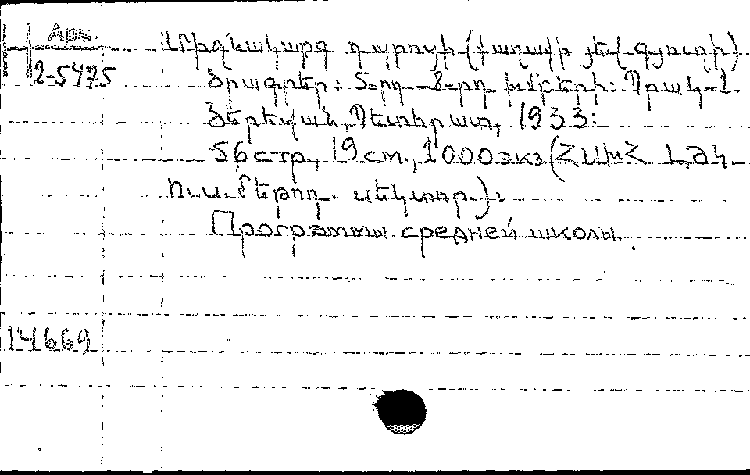 Арм.
2-5475
Միջնակարգ դպրոցի (քաղաքի յեվ գյուղի)
Ծրագրեր: 5-րդ-8-րդ խմբերի: Պրակ-1.
Յերեվան, Պետհրատ, 1933:
56 стр, 19 см., 1000 экз (ՀՍԽՀ Լ.Ժ.Կ
Ուս. մեթոդ. սեկտոր):
Программы средней школы.
14669